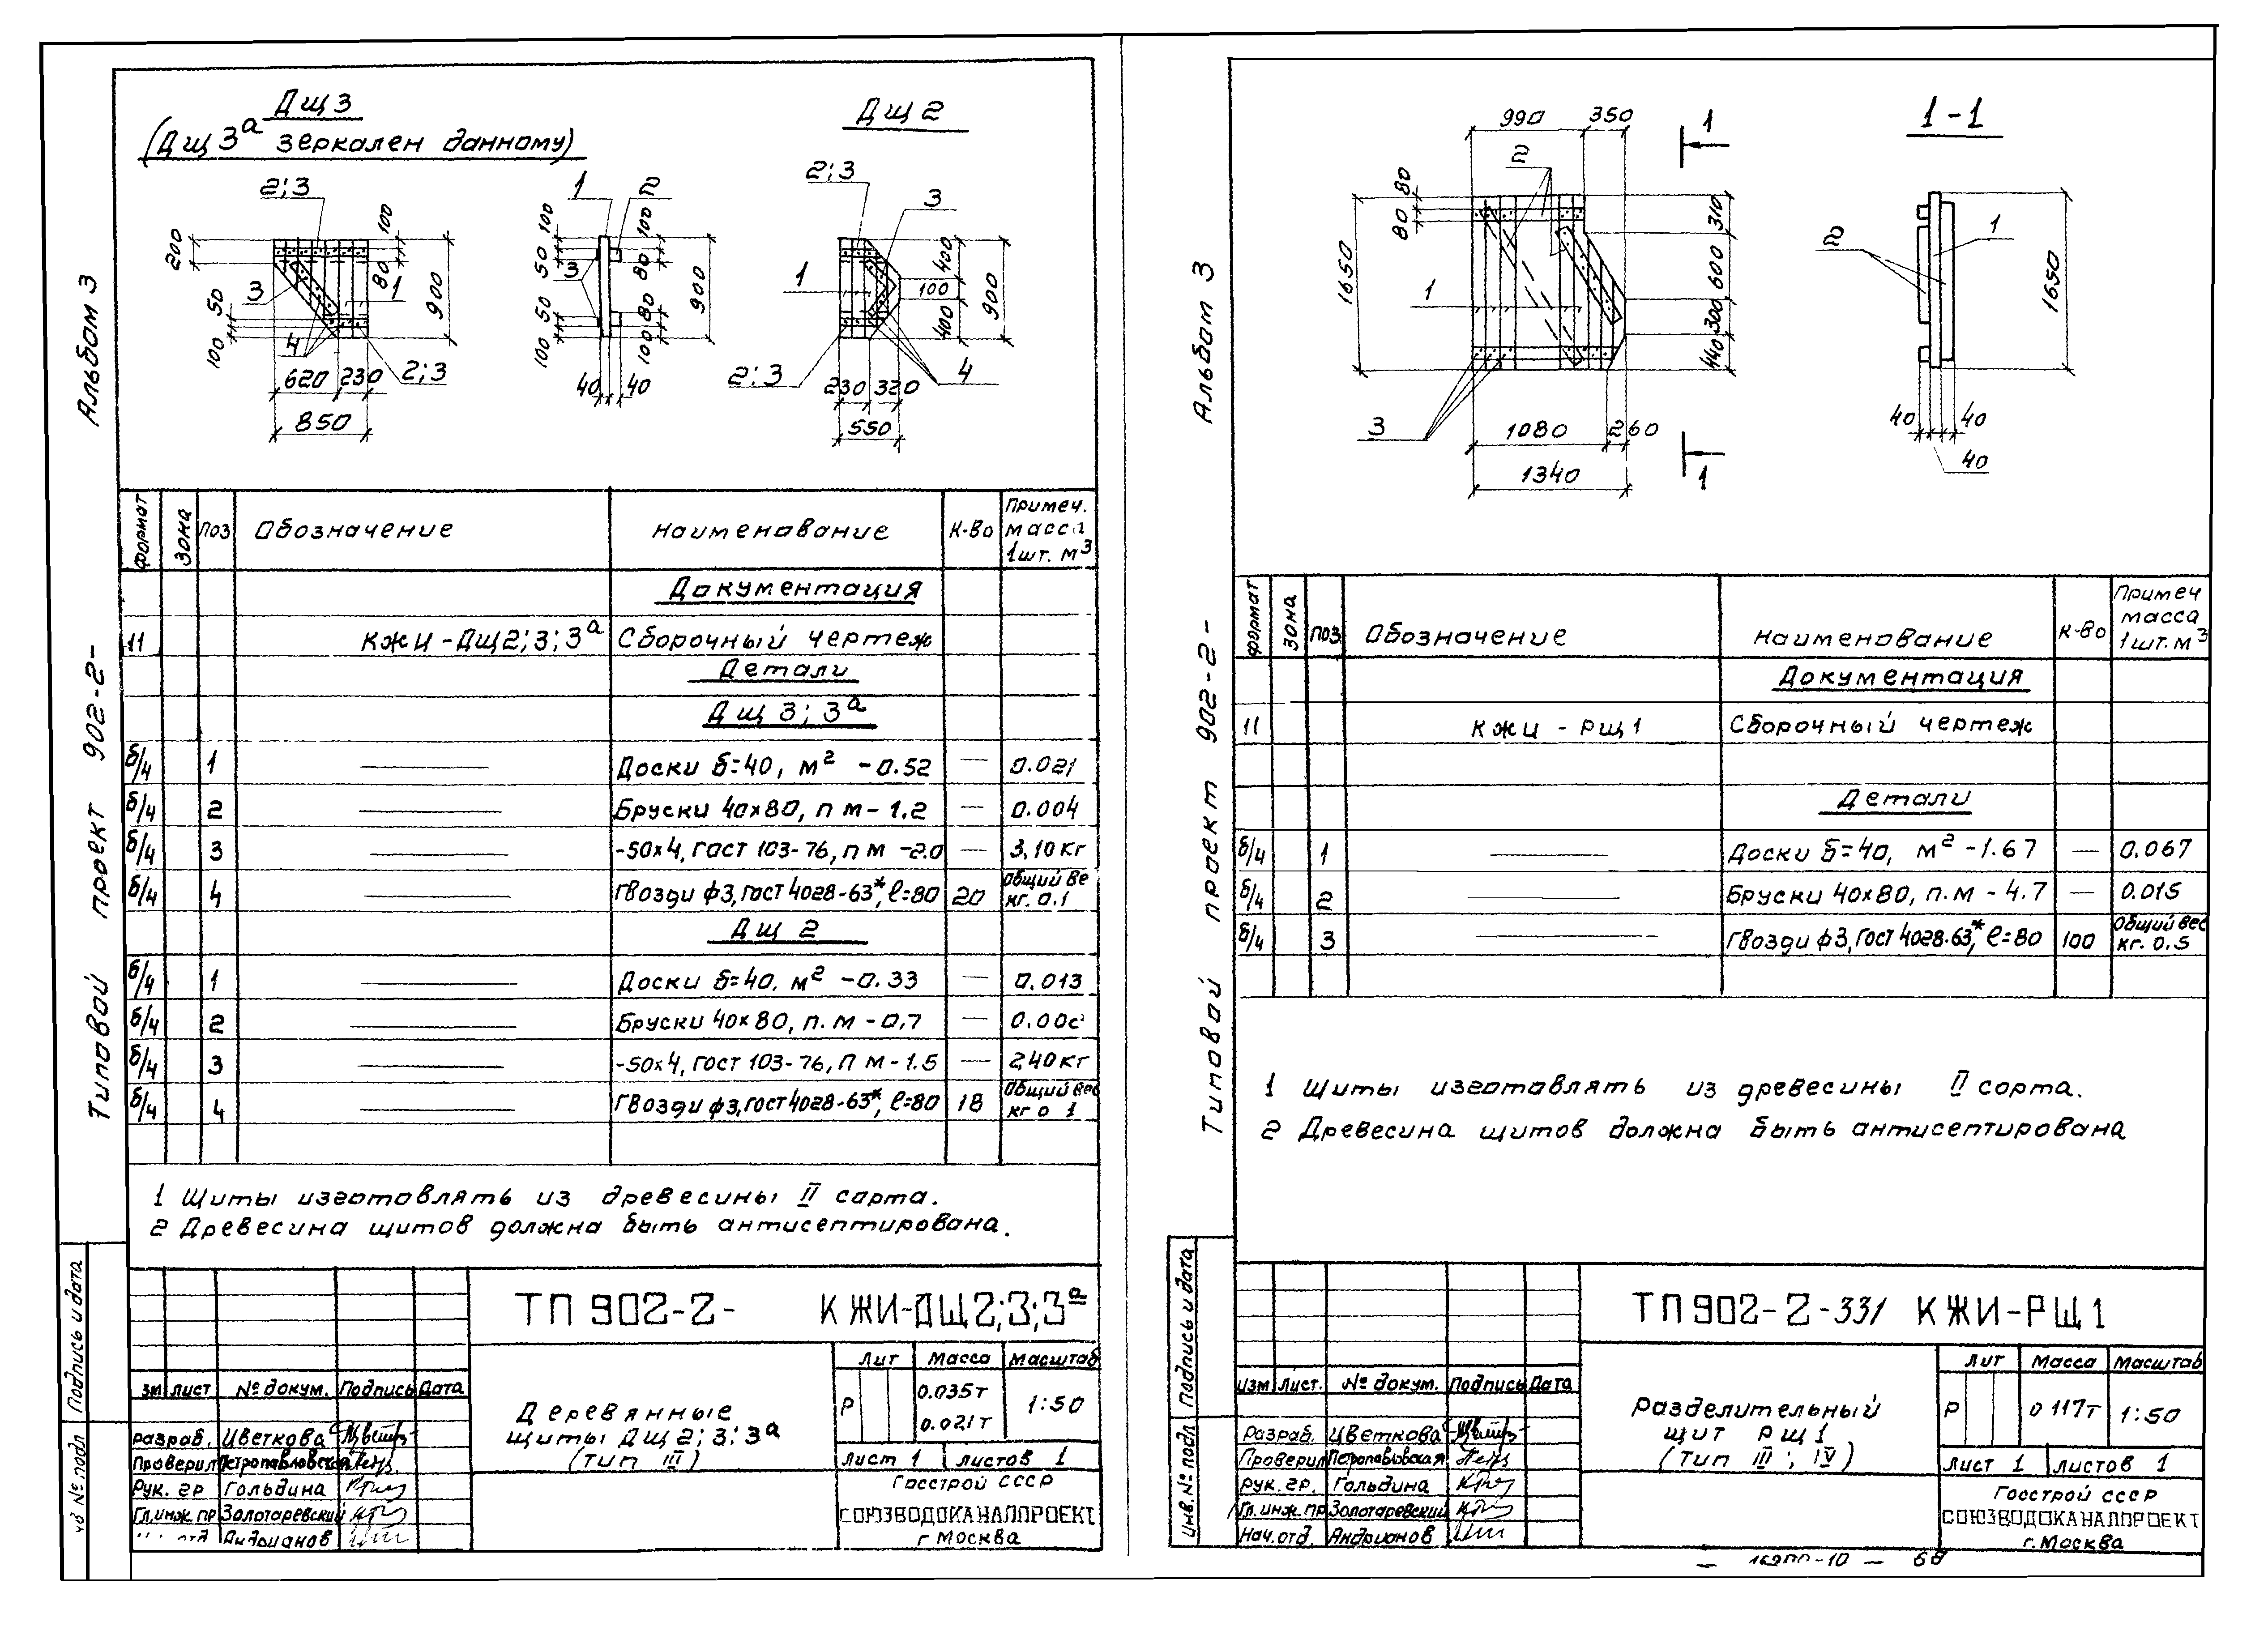 Альбом 3
Типовой проект 902-2-
ДЩ3
(ДЩ3а зеркален данному)
ДЩ2
2;3
200
100
80
900
3
1
50
100
4
2;3
620
230
850
1
2
100
50
3
50
100
100
80
80
100
900
40
40
2;3
3
1
400
100
400
900
2;3
4
230
320
550
формат
зона
поз
Обозначение
Наименование
К-во
Примеч. масса 1шт. м3
Документация
11 КЖИ-ДЩ2;3;3а Сборочный чертеж
Детали
ДЩ3; 3а
б/ч 1 Доски б=40, м2 -0.52 — 0.021
б/ч 2 Бруски 40х80, п м - 1.2 — 0.004
б/ч 3 -50х4, ГОСТ 103-76, п м -2.0 — 3,10кг
б/ч 4 Гвозди ф3, ГОСТ 4028-63*, ℓ=80 20 Общий ве кг. 0.1
ДЩ 2
б/ч 1 Доски б=40, м2 -0.33 — 0.013
б/ч 2 Бруски 40х80, п.м -0,7 —
б/ч 3 -50х4, ГОСТ 103-76, п м -1.5 — 2,40кг
б/ч 4 Гвозди ф3, ГОСТ 4028-63*, ℓ=80 18 Общий вес кг 0 1
1 Щиты изготовлять из древесины II сорта.
2 Древесина щитов должна быть антисептирована.
ТП 902-2- КЖИ-ДЩ2;3;3а
зм лист № докум. Подпись Дата
Разраб. Цветкова
Проверил Петропавловская
Рук. гр Гольдина
Гл.инж.пр Золотаревский
отд Андрианов
Деревянные
щиты ДЩ2;3;3а
(тип III)
Лит Масса Масштаб
Р 0.035т 0.021т 1:50
Лист 1 Листов 1
Госстрой СССР
СОЮЗВОДОКАНАЛПРОЕКТ
г Москва
Подпись и дата
№ подл
Альбом 3
Типовой проект 902-2-
990
350
1
2
80
80
1650
1
310
600
300
440
3
1080
260
1340
1
1-1
2
1
1650
40
40
40
формат
зона
поз
Обозначение
Наименование
К-во
Примеч масса 1шт. м3
Документация
11 КЖИ - РЩ1 Сборочный чертеж
Детали
б/ч 1 Доски б=40, м2 -1.67 — 0.067
б/ч 2 Бруски 40х80, п.м - 4.7 — 0.015
б/ч 3 Гвозди ф3, ГОСТ 4028-63*, ℓ=80 100 Общий вес кг. 0.5
1 Щиты изготовлять из древесины II сорта.
2 Древесина щитов должна быть антисептирована
ТП 902-2-331 КЖИ-РЩ1
Изм Лист. № докум. Подпись Дата
Разраб. Цветкова
Проверил Петропавловская
Рук. гр. Гольдина
Гл.инж.пр Золотаревский
Нач.отд. Андрианов
Разделительный
щит РЩ1
(тип III; IV)
Лит Масса Масштаб
Р 0 117т 1:50
Лист 1 Листов 1
Госстрой СССР
СОЮЗВОДОКАНАЛПРОЕКТ
г.Москва
Подпись и дата
Инв.№ подл